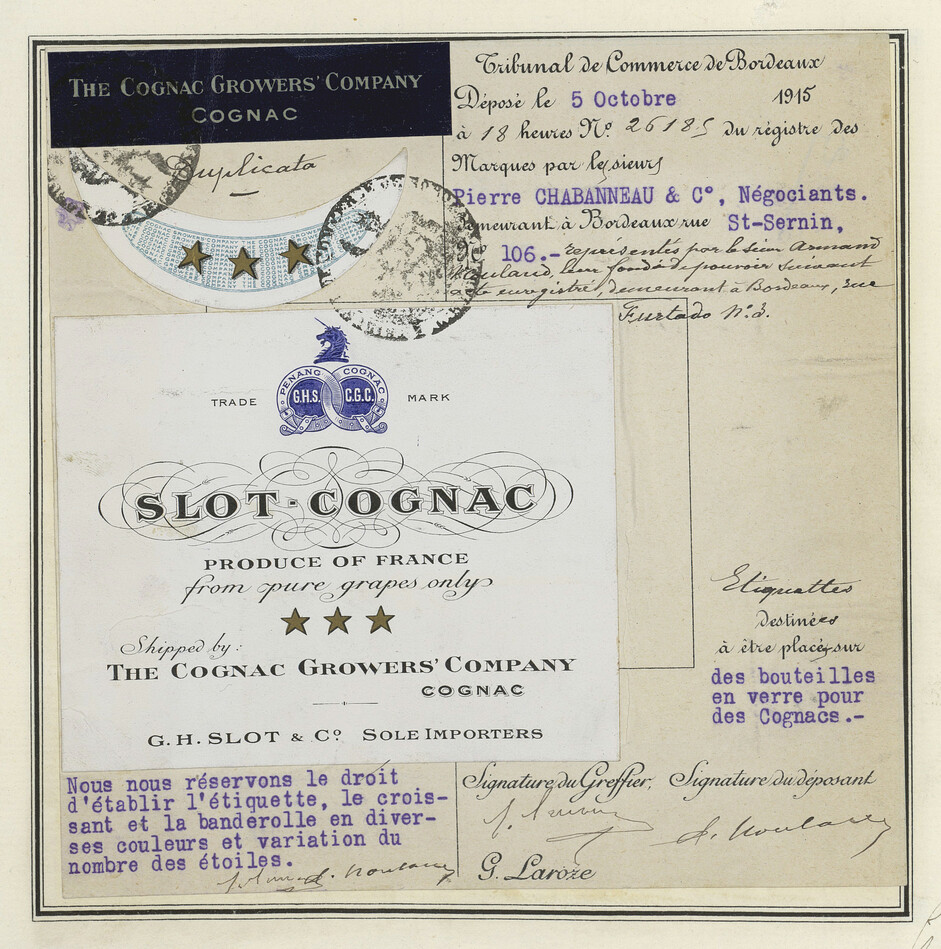 THE COGNAC GROWERS' COMPANY
COGNAC
Duplicata
Tribunal de Commerce de Bordeaux
Déposé le 5 Octobre 1915
à 18 heures No. 26185 du régistre des
Marques par le sieurs
Pierre CHABANNEAU & Co, Négociants.
demeurant à Bordeaux rue St-Sernin,
No 106.- représentés par le sieur Armand
Moulard, leur fondé de pouvoir suivant
acte enregistré, demeurant à Bordeaux, rue
Furtado No. 3.
TRADE MARK
PENANG COGNAC
G.H.S. C.G.C.
SLOT-COGNAC
PRODUCE OF FRANCE
from pure grapes only
Shipped by:
THE COGNAC GROWERS' COMPANY
COGNAC
G. H. SLOT & Co SOLE IMPORTERS
Etiquettes
destinées
à être placés sur
des bouteilles
en verre pour
des Cognacs.-
Nous nous réservons le droit
d'établir l'étiquette, le crois-
sant et la banderolle en diver-
ses couleurs et variation du
nombre des étoiles.
Signature du Greffier, Signature du déposant
G. Laroze